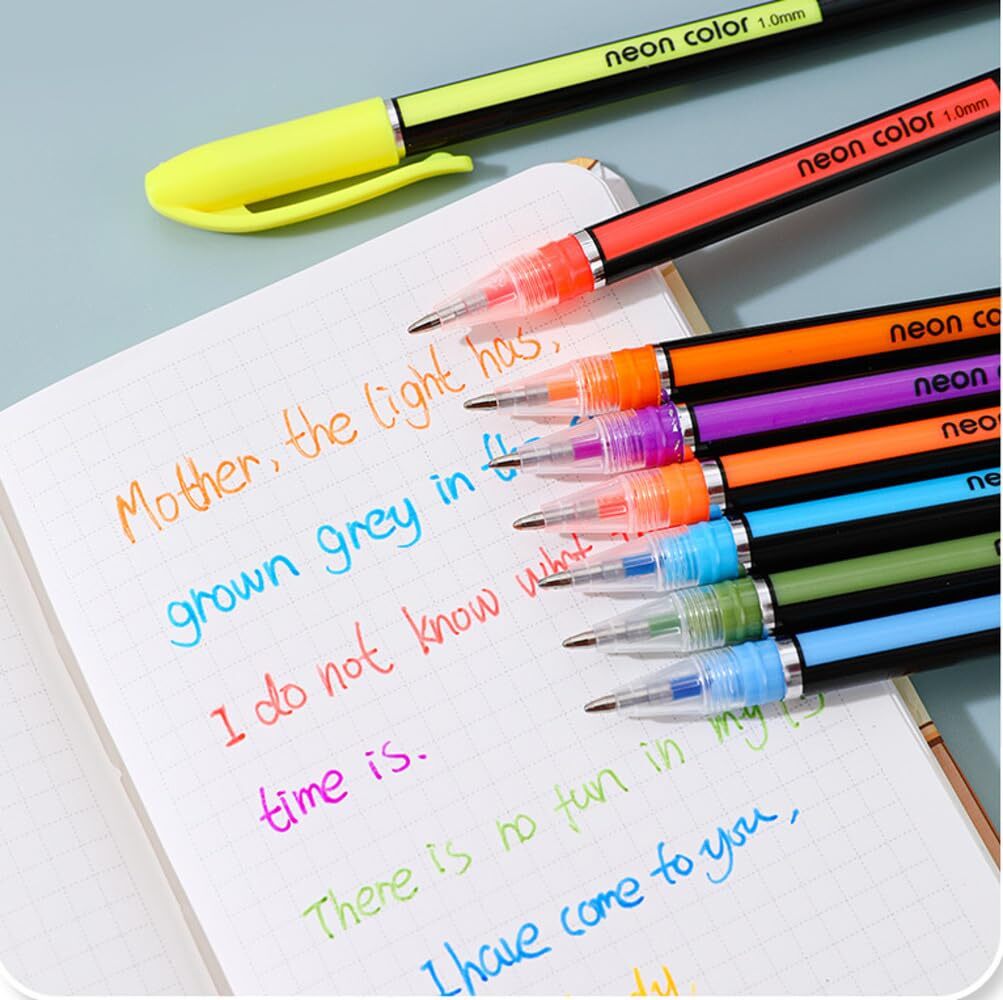 neon color 1.0mm
neon color 1.0mm
neon co
neon
neo
ne
Mother, the light has,
grown grey in the
I do not know what
time is.
There is no fun in my
I have come to you,